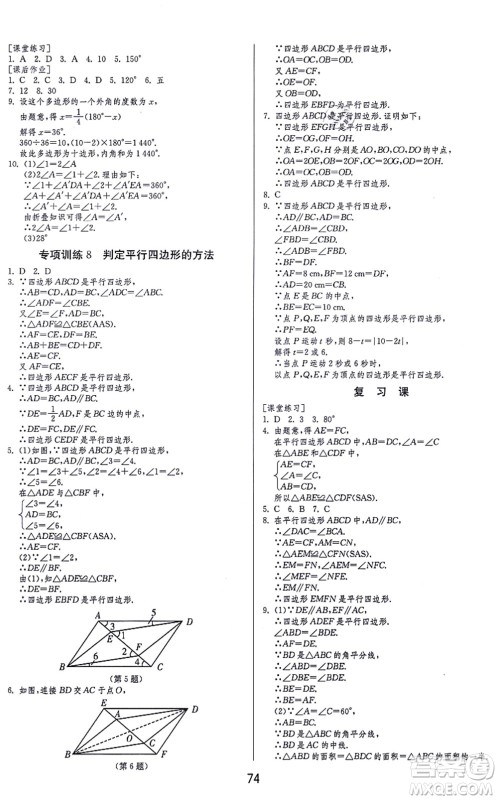 [课堂练习]
1. A 2. D 3. A 4. 10 5. 120°
[课后作业]
1. C 2. C 3. D 4. D 5. 120° 6. 五
7. 12 8. 30
9. 设这个多边形的一个外角的度数为x,
由题意,得x=1/4(180°-x)
解得x=36°.
360÷36=10,(10-2)×180=1 440°.
故此多边形为十边形,内角和为1 440°.
10. (1)∠1=2∠A
(2)2∠A=∠1+∠2. 理由如下:
∵∠1+∠A′DA+∠2+∠A′EA=360°
∠A+∠A′+∠A′DA+∠A′EA=360°
∴∠A′+∠A=∠1+∠2.
由折叠知识可得∠A=∠A′
∴2∠A=∠1+∠2.
(3)28°
专项训练8 判定平行四边形的方法
1. D 2. D.
3. ∵四边形ABCD是平行四边形.
∴AB=CD,AD=BC,
∴∠ADF=∠CBE.
又∵AF∥CE,
∴∠AFD=∠CEB.
∴△ADF≌△CBE(AAS)
∴AF=CE,DF=BE.
∴AB-BE=CD-DF,
∴AE=CF.
∴四边形AECF是平行四边形.
4. ∵四边形ABCD是平行四边形,
∴AD=BC,AD∥BC.
∵DE=1/2AD,F是BC边的中点,
∴DE=FC,DE∥FC.
∴四边形CEDF是平行四边形.
5. (1)如图,∵四边形ABCD是平行四边形,
∴AD=BC,AD∥BC,∠3=∠4.
∵∠1=∠3+∠5,∠2=∠4+∠6,∠1=∠2.
∴∠5=∠6.
在△ADE与△CBF中,
{∠3=∠4,
AD=BC,
∠5=∠6,
∴△ADE≌△CBF(ASA)
∴AE=CF.
(2)∵∠1=∠2,
∴DE∥BF.
由(1),知△ADE≌△CBF,
∴DE=BF.
∴四边形EBFD是平行四边形.
A D 3 5 E 1 2 F 6 4 B C
(第5题)
6. 如图,连接BD交AC于点O,
E D A O C B F
(第6题)
∵四边形ABCD是平行四边形,
∴OA=OC,OB=OD.
又∵AE=CF,
∴OE=OF.
又∵OB=OD,
∴四边形EBFD为平行四边形.
7. 四边形ABCD是平行四边形. 证明如下:
∵四边形EFGH是平行四边形,
∴OE=OG,OF=OH.
∵点E、F、G、H分别是AO,BO,CO,DO的中点,
∴OA=OC,OB=OD.
∴四边形ABCD是平行四边形.
8. C
9. ∵四边形ABCD是平行四边形,
∴AD∥BC,AD=BC.
∴∠ADB=∠CBD.
∵∠FBD=∠CBD,
∴∠FBD=∠FDB.
∴FB=FD.
∵AF=8 cm,BF=12 cm,
∴AD=20 cm.
∵点E是BC的中点,
∴BE=EC=10 cm.
∵点P、Q、E、F为顶点的四边形是平行四边形,
∴PF=EQ.
设点P运动了t秒,则8-t=|10-2t|.
解得t=2或6.
∴当点P运动2秒或6秒时,
以点P、Q、E、F为顶点的四边形是平行四边形.
复习课
[课堂练习]
1. D 2. 3 3. 80°
4. 由题意,得AE=CF
在平行四边形ABCD中,AB=CD,∠A=∠C
在△ABE与△CDF中
{AE=CF,
∠A=∠C,
AB=CD,
所以△ABE≌△CDF(SAS).
5. C 6. B 7. 4
8. 在平行四边形ABCD中,AD∥BC
∴∠DAC=∠BCA.
∵AE=CF,AM=CN,
∴△AEM≌△CFN(SAS).
∴EM=FN,∠AEM=∠CFN.
∴∠MEF=∠NFE.
∴EM∥FN,
∴四边形EMFN是平行四边形.
9. (1)∵DE∥AF,EF∥AD,
∴四边形ADEF是平行四边形.
∴AF=DE.
∵BD是△ABC的角平分线,
∴∠ABD=∠DBE.
∵DE∥AB,
∴∠ABD=∠BDE,
∴∠DBE=∠BDE.
∴BE=DE.
∴BE=AF.
(2)∵∠A=∠C=60°,
∴△ABC为等边三角形.
∵BD是∠ABC的平分线,
∴BD是△ABC的中线,
∴△ABD的面积=△DBC的面积=△ABC的面积的一半
74